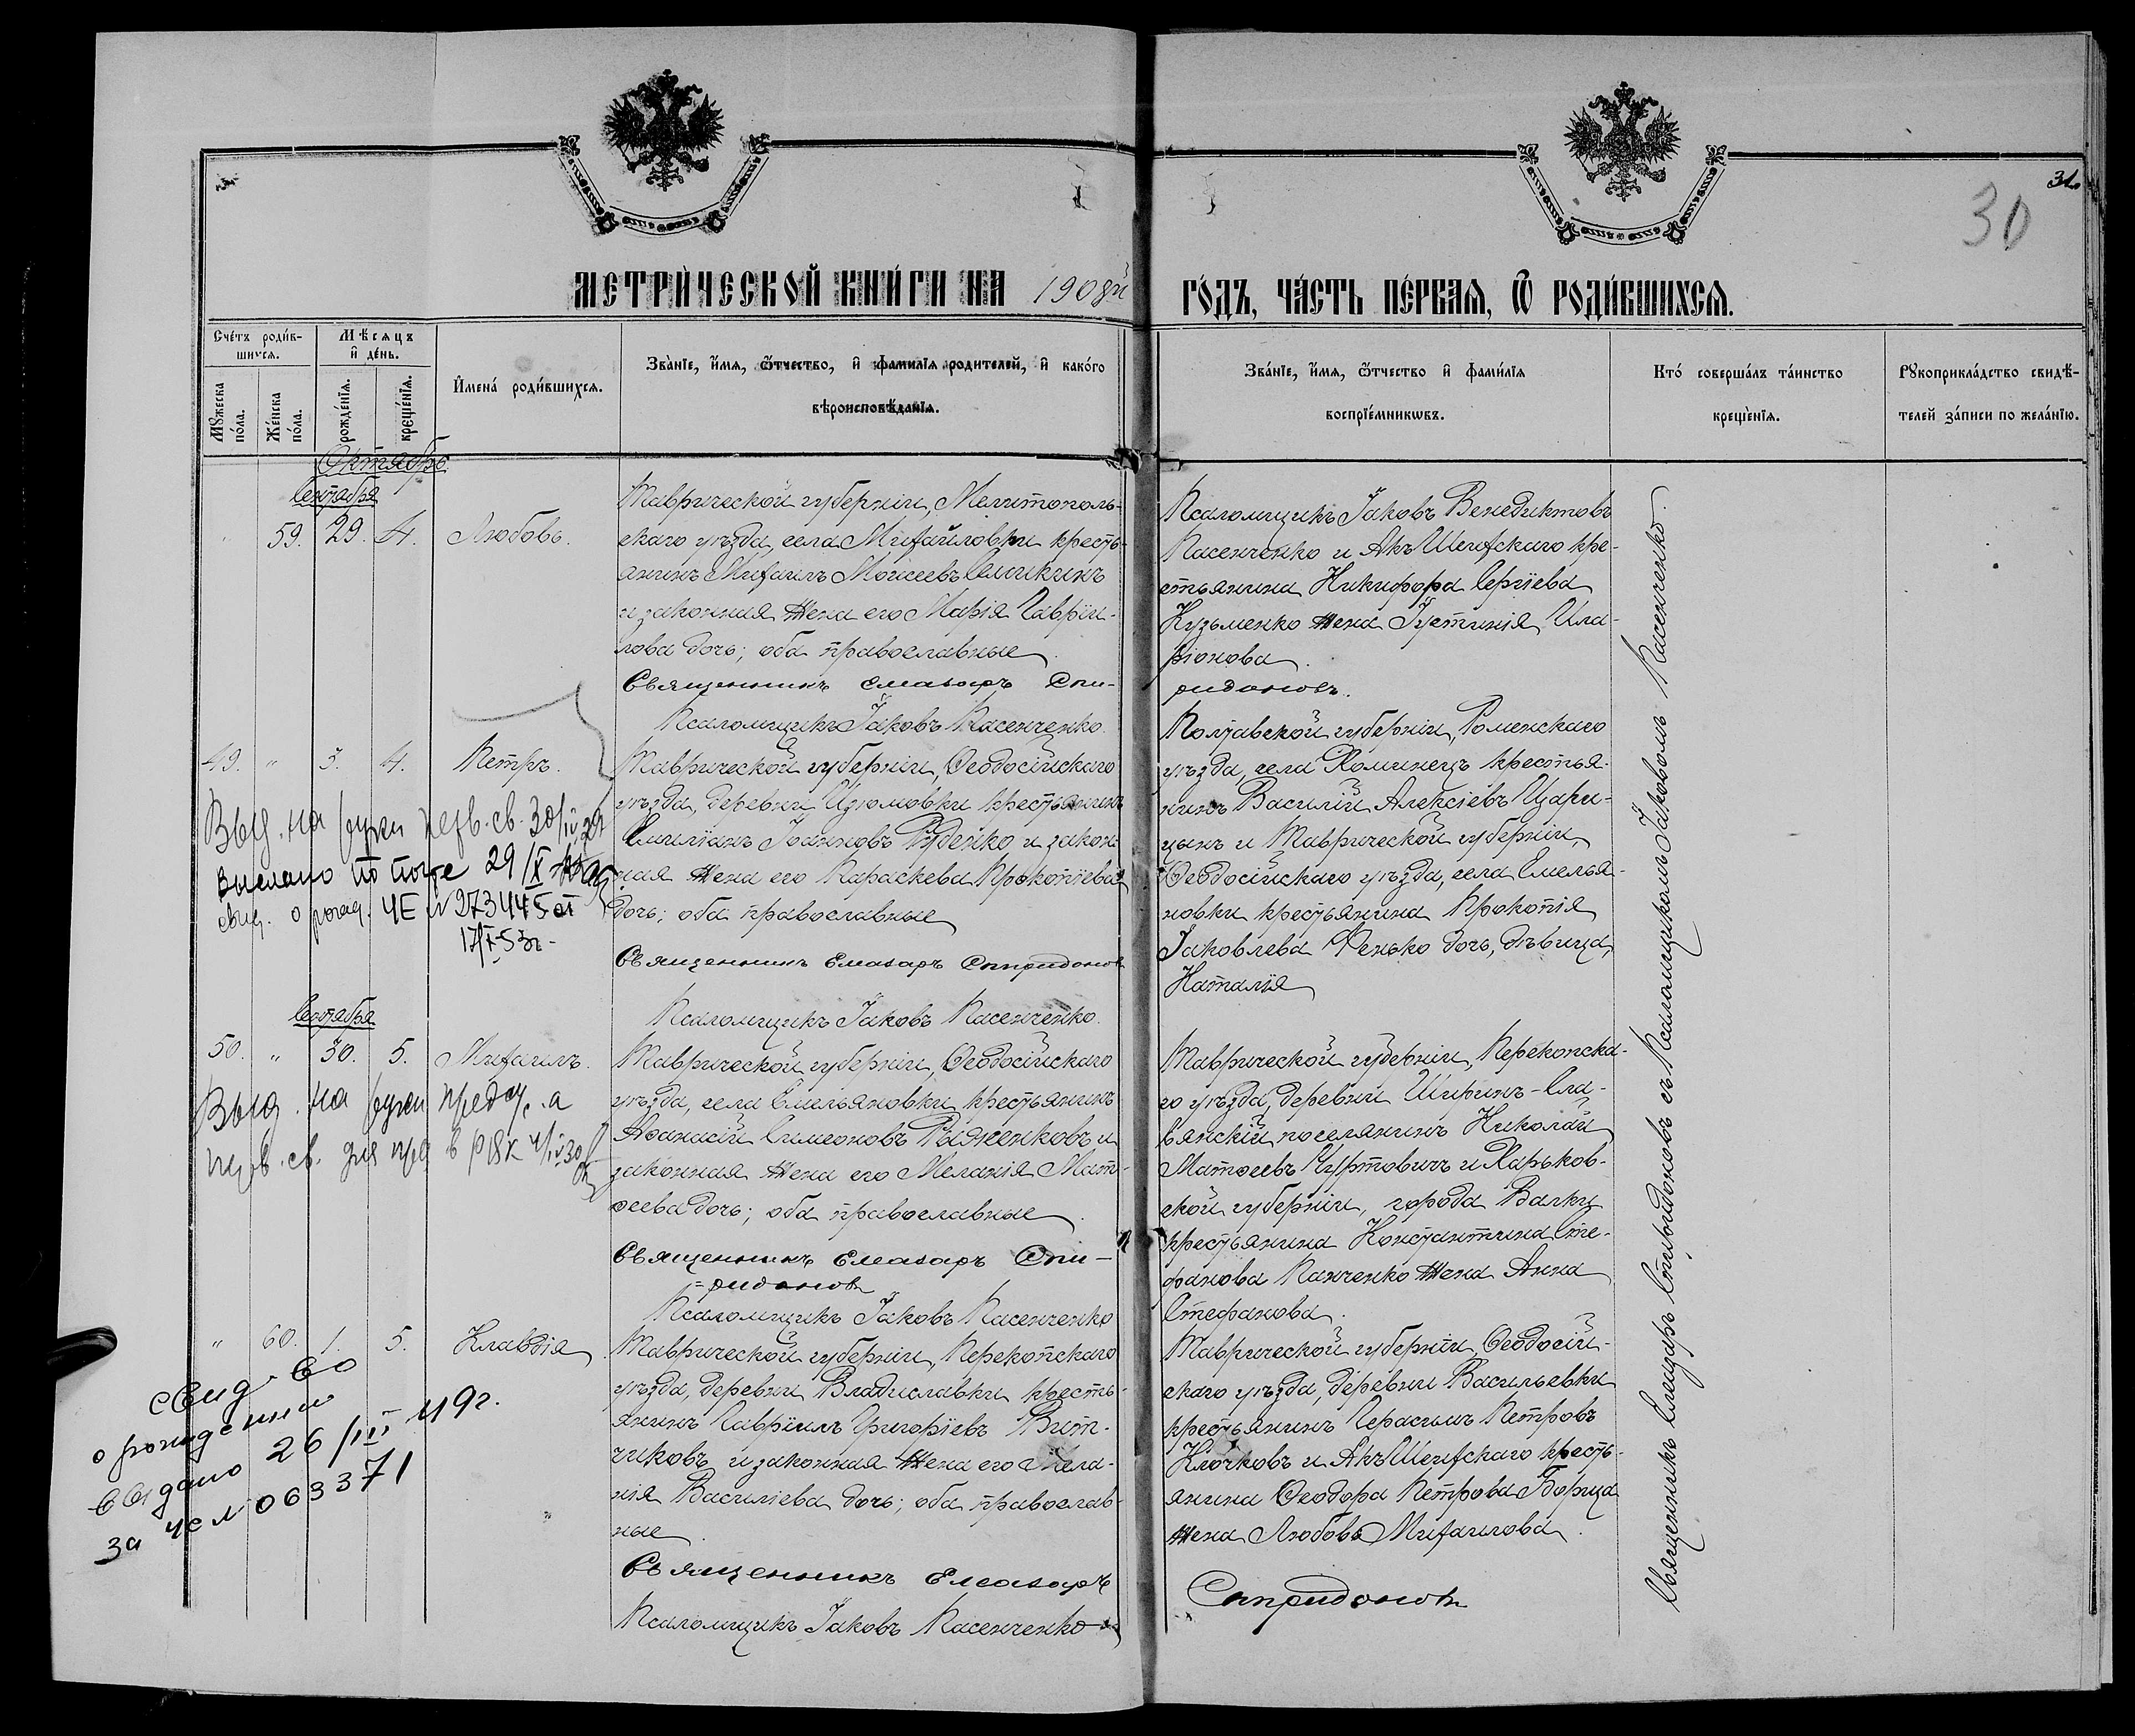 31.
30
МЕТРИЧЕСКОЙ КНИГИ НА 1908й ГОДЪ, ЧАСТЬ ПЕРВАЯ, Ѡ РОДИВШИХСЯ.
Счетъ родив-
шихся.
Мужеска
пола.
Женска
пола.
Мѣсяцъ
и день.
рожденія.
крещенія.
Имена родившихся.
Званіе, имя, ѿтчество, и фамилія родителей, и какого
вѣроисповѣданія.
Званіе, имя, ѿтчество и фамилія
воспріемниковъ.
Кто совершалъ таинство
крещенія.
Рукоприкладство свидѣ-
телей записи по желанію.
Октябрь
Сентября
59. 29. 4. Любовь.
Таврической губерніи, Мелитополь-
скаго уѣзда, села Михайловки кресть-
янинъ Михаилъ Моисеевъ
и законная жена его Марія Гавріи-
лова дочь; оба православные
Священникъ Елеазаръ Спи-
ридоновъ.
Псаломщикъ Іаковъ Пасенченко.
Псаломщикъ Іаковъ Венедиктовъ
Пасенченко и Акъ Шеихскаго кре-
стьянина Никифора Сергіева
Кузьменко жена Іустинія Ила-
ріонова.
49. " 3. 4. Петръ.
Таврической губерніи, Ѳеодосійскаго
уѣзда, деревни Изюмовки крестьянинъ
Емиліанъ Іоанновъ Руденко и закон-
ная жена его Параскева Прокопіева
дочь; оба православные
Священникъ Елеазаръ Спиридоновъ
Псаломщикъ Іаковъ Пасенченко.
Полтавской губерніи, Роменскаго
уѣзда, села Хоминецъ крестья-
нинъ Василій Алексіевъ Цари-
цынъ и Таврической губерніи,
Ѳеодосійскаго уѣзда, села Емелья-
новки крестьянина Прокопія
Іаковлева Фенько дочь, дѣвица,
Наталія
Выд. на руки
выслано по почте 29/X
свид. о рожд. ЧЕ № 273445 от
17/X-53г-
Сентября
50. " 30. 5. Михаилъ.
Таврической губерніи, Ѳеодосійскаго
уѣзда, села Емельяновки, крестьянинъ
Аѳанасій Симеоновъ Рыженковъ и
законная жена его Меланія Мат-
ѳеева дочь; оба православные
Священникъ Елеазаръ Спи-
=ридоновъ
Псаломщикъ Іаковъ Пасенченко
Таврической губерніи, Перекопска-
го уѣзда, деревни Ширинъ-Сла-
вянскій поселянинъ Николай
Матѳеевъ Чуртовичъ и Харьков-
ской губерніи, города Валки
крестьянина Константина Сте-
фанова Панченко жена Анна
Стефанова.
Выд. на руки
" 60. 1. 5. Клавдія
Таврической губерніи, Перекопскаго
уѣзда, деревни Владиславки кресть-
янинъ Гавріилъ Григоріевъ Вит-
чиковъ и законная жена его Мела-
нія Василіева дочь; оба православ-
ные
Священникъ Елеазаръ
Спиридоновъ
Псаломщикъ Іаковъ Пасенченко
Таврической губерніи, Ѳеодосій-
скаго уѣзда, деревни Васильевки
крестьянинъ Герасимъ Петровъ
Клочковъ и Акъ Шеихскаго кресть-
янина Ѳеодора Петрова
жена Любовь Михаилова.
свид-во
о рождении
выдано 26/III 49г.
за ЧС № 063371
Священникъ Елеазаръ Спиридоновъ съ Псаломщикомъ Іаковомъ Пасенченко.